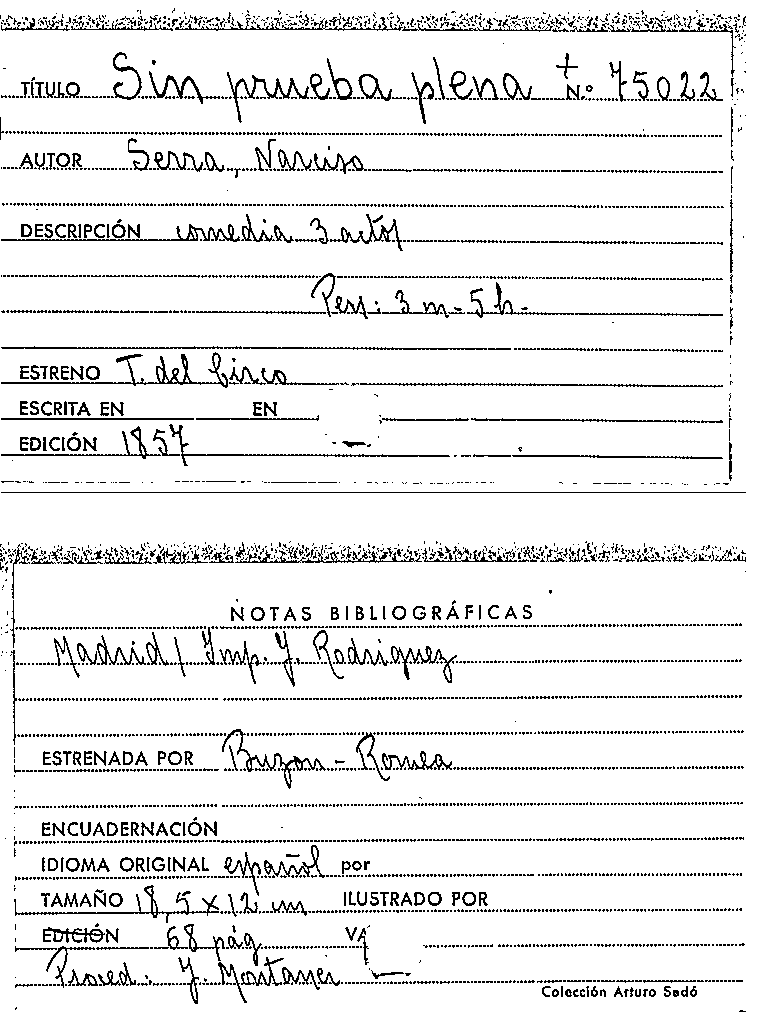 TÍTULO Sin prueba plena + N.º 75022
AUTOR Serra, Narciso
DESCRIPCIÓN comedia 3 actos
Pers: 3 m - 5 h -
ESTRENO T. del Circo
ESCRITA EN EN
EDICIÓN 1857
NOTAS BIBLIOGRÁFICAS
Madrid / Imp. J. Rodriguez
ESTRENADA POR Buzon - Romea
ENCUADERNACIÓN
IDIOMA ORIGINAL español por
TAMAÑO 18,5 x 12 cm ILUSTRADO POR
EDICIÓN 68 pág VA
Proced: J. Montaner
Colección Arturo Sedó